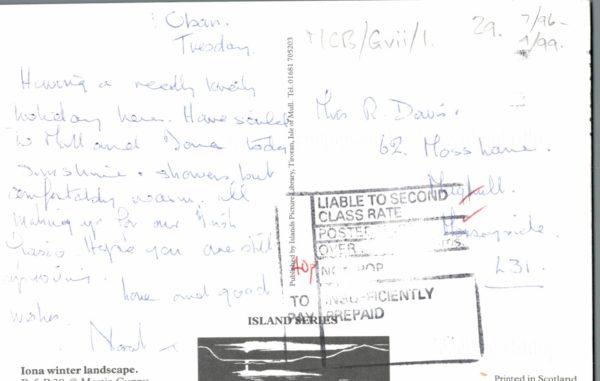 Oban.
Tuesday.
Having a really lovely
holiday here. Have sailed
to Mull and Iona today
Sunshine & showers, but
comfortably warm, all
making up for our Irish
Hope you are still
improving.
Love and good
wishes
MCB/Gvii/1.
29.
7/96-
1/99.
Mrs R. Davis.
62 Moss Lane.
Maghull.
Merseyside.
L31.
Published by Islands Picture Library, Tiroran, Isle of Mull. Tel. 01681 705203
LIABLE TO SECOND
CLASS RATE
POSTED
OVER
40p
TO
PAY
INSUFFICIENTLY
PREPAID
ISLAND SERIES
Iona winter landscape.
Printed in Scotland